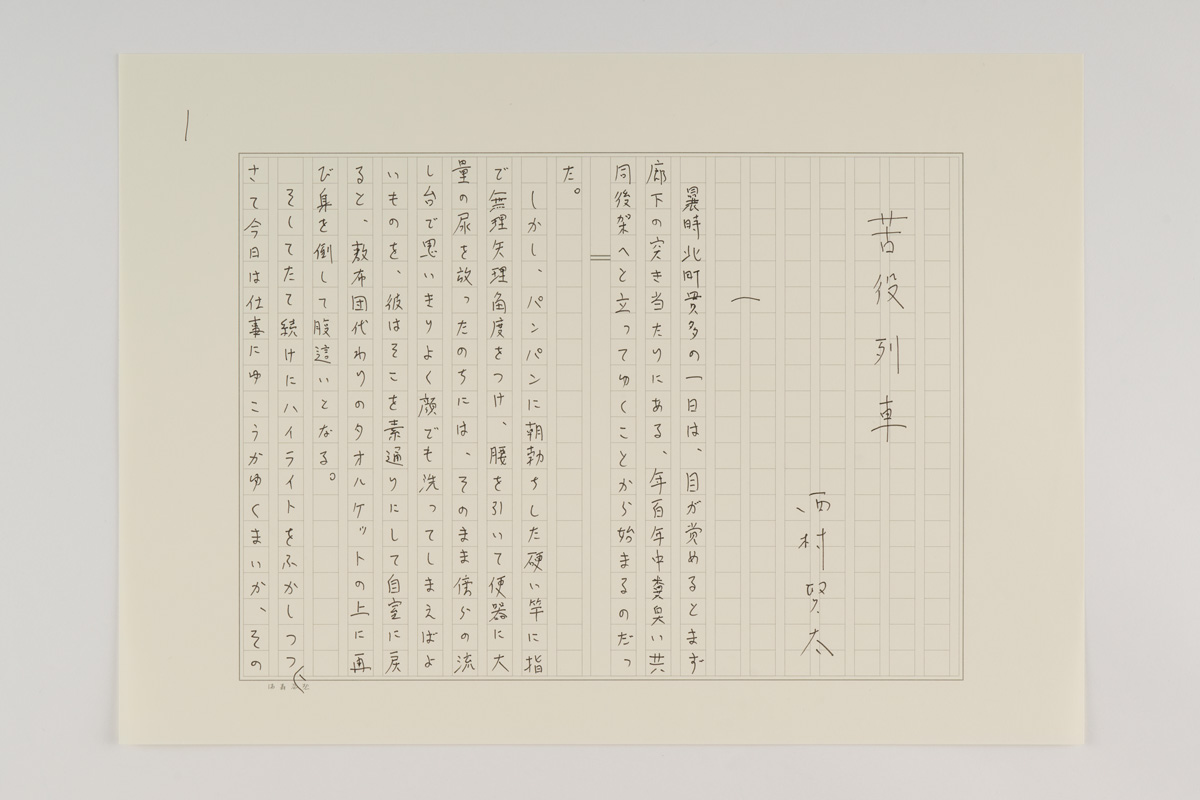 1
苦役列車
西村賢太
一
曩時北町貫多の一日は、目が覚めるとまず
廊下の突き当たりにある、年百年中糞臭い共
同後架へと立ってゆくことから始まるのだっ
た。
しかし、パンパンに朝勃ちした硬い竿に指
で無理矢理角度をつけ、腰を引いて便器に大
量の尿を放ったのちには、そのまま傍らの流
し台で思いきりよく顔でも洗ってしまえばよ
いものを、彼はそこを素通りにして自室に戻
ると、敷布団代わりのタオルケットの上に再
び身を倒して腹這いとなる。
そしてたて続けにハイライトをふかしつつ、
さて今日は仕事にゆこうかゆくまいか、その